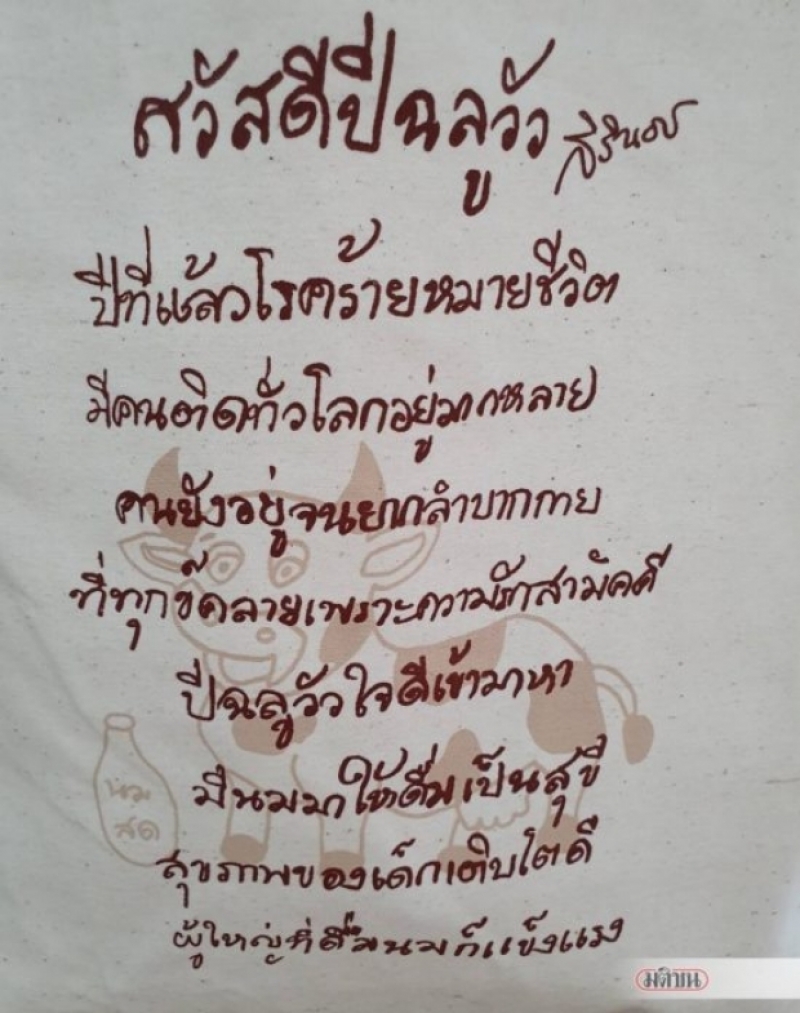 สวัสดีปีฉลูวัว สิรินธร
ปีที่แล้วโรคร้ายหมายชีวิต
มีคนติดทั่วโลกอยู่มากหลาย
คนยังอยู่จนยากลำบากกาย
ที่ทุกข์คลายเพราะความรักสามัคคี
ปีฉลูวัวใจดีเข้ามาหา
มีนมมาให้ดื่มเป็นสุขี
สุขภาพของเด็กเติบโตดี
ผู้ใหญ่ที่ดื่มนมก็แข็งแรง
นม
สด
มติชน